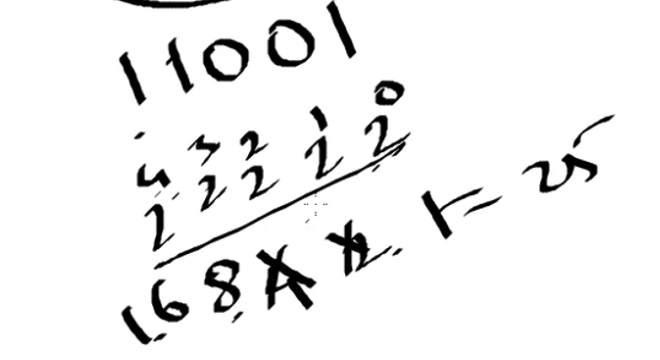 11001
2⁴ 2³ 2² 2¹ 2⁰
16 8 4 2 1 = 25